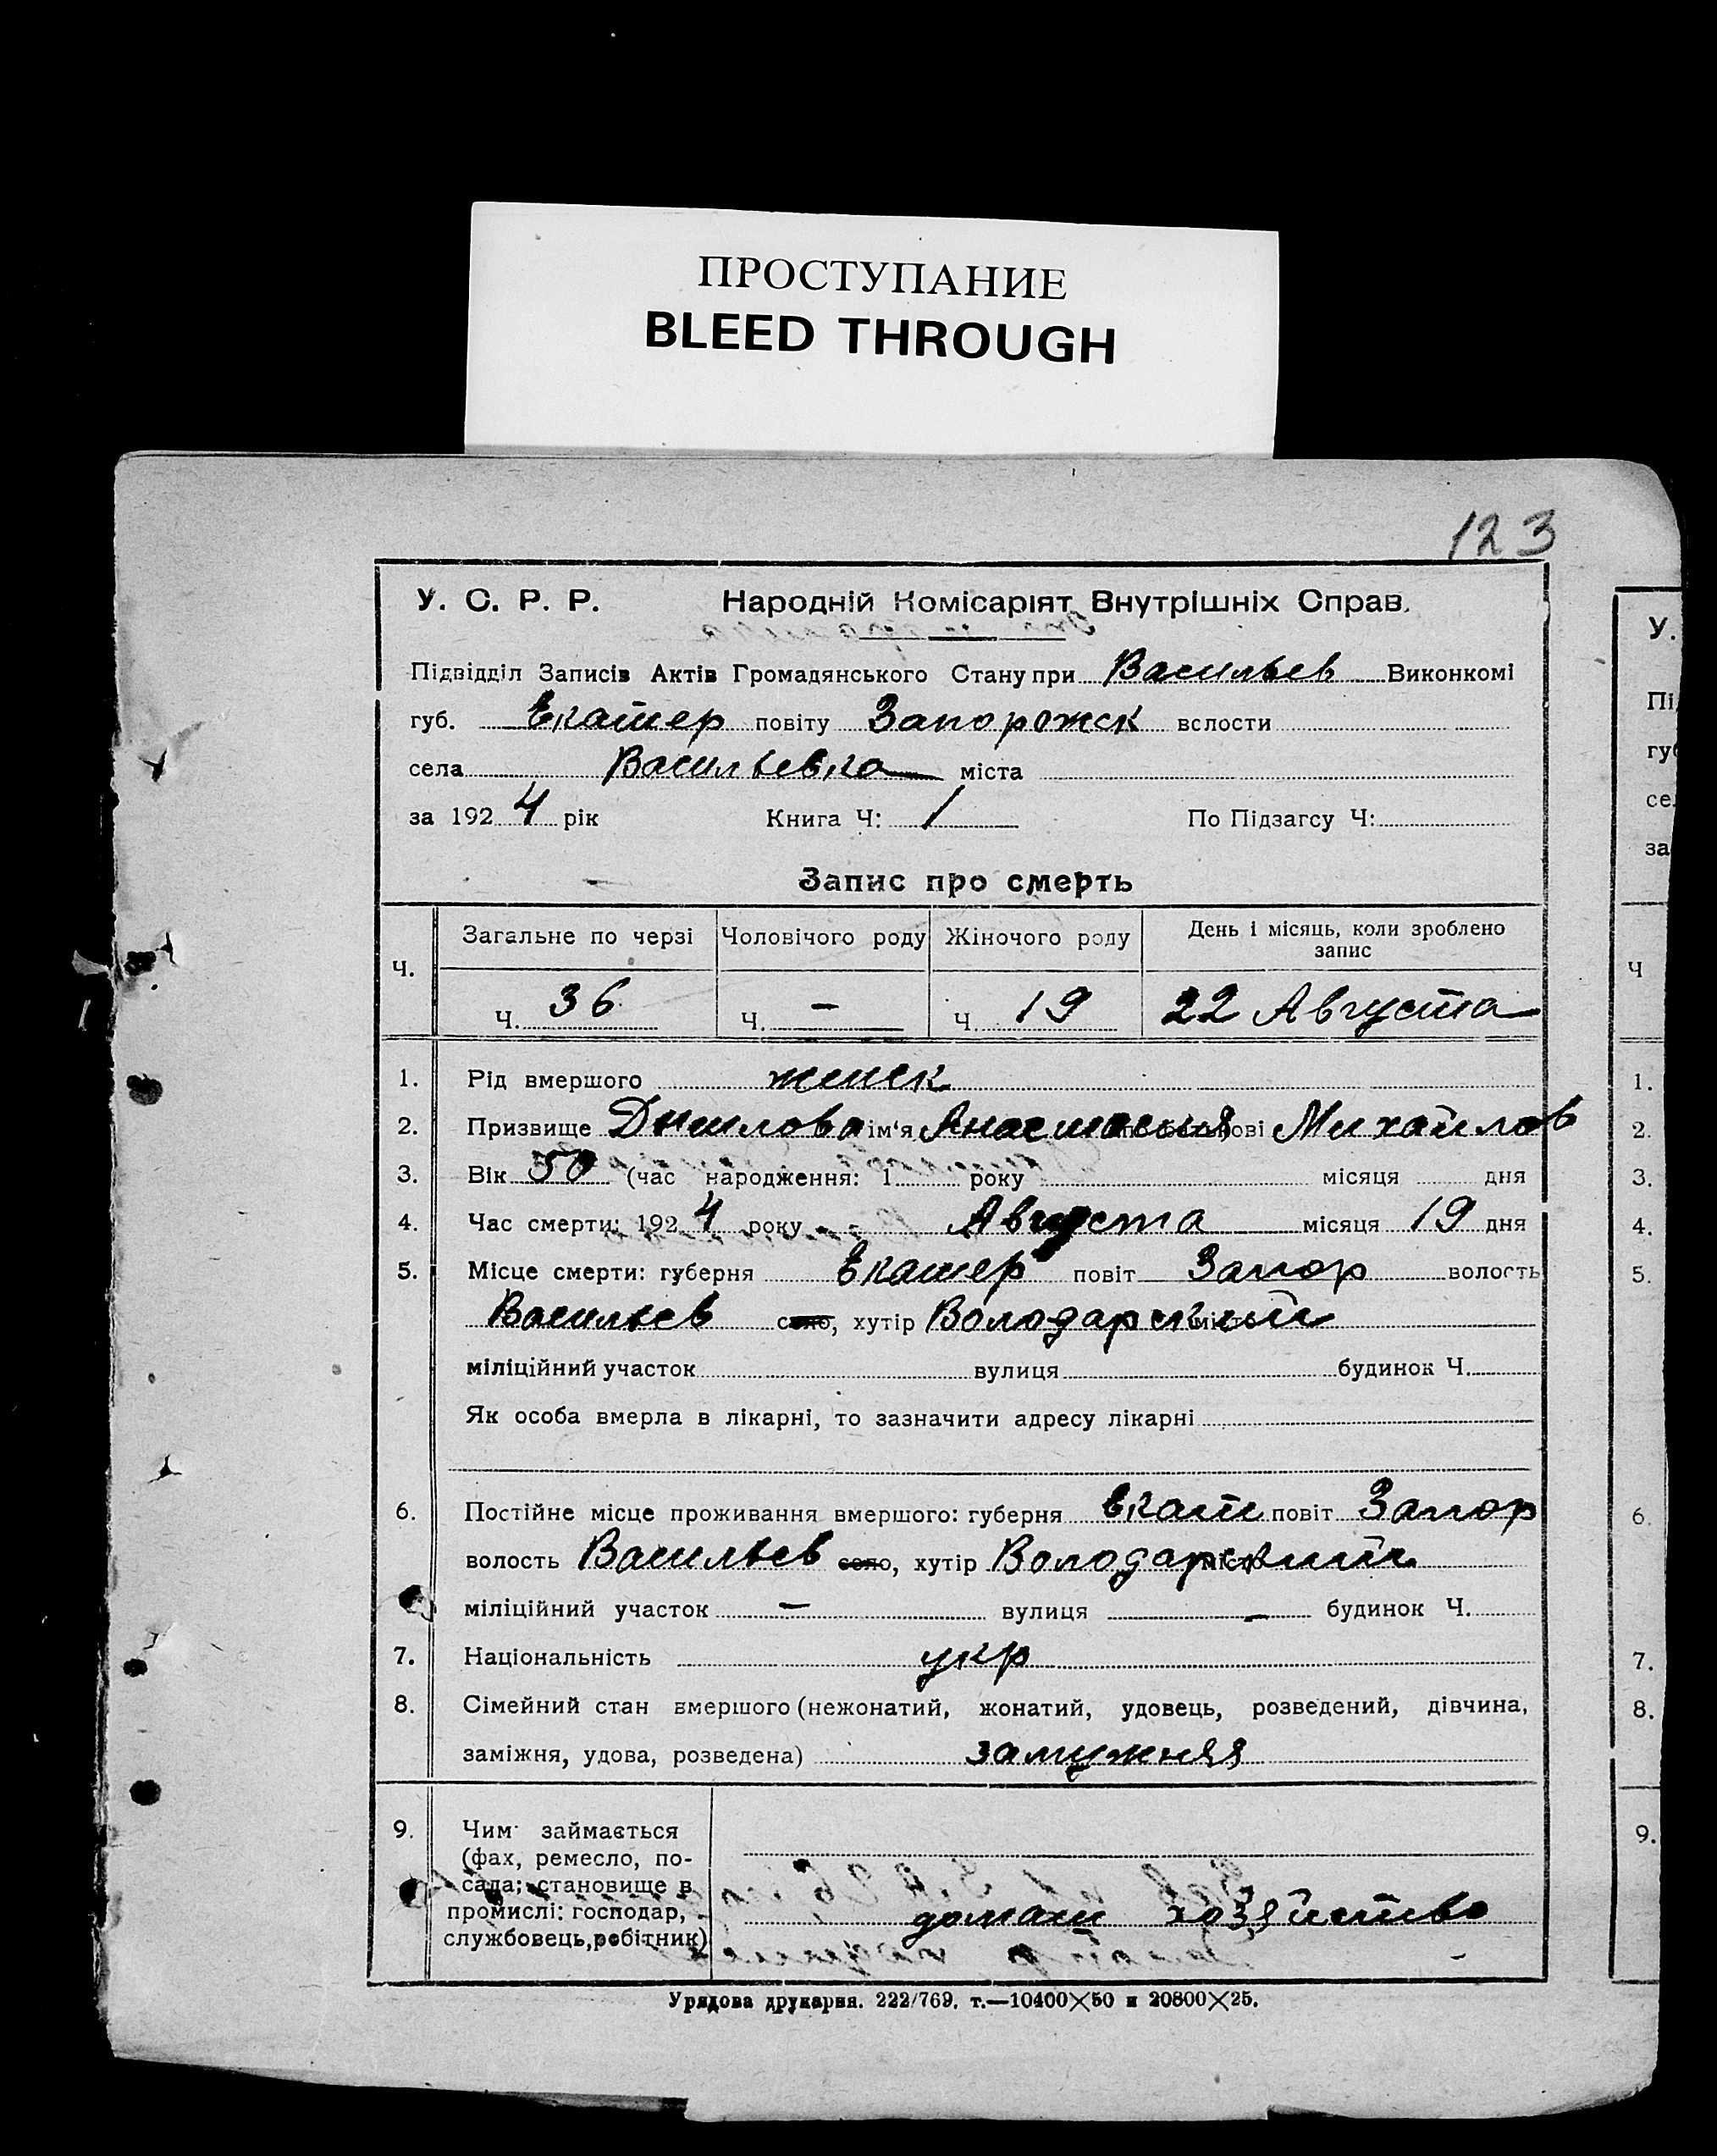 ПРОСТУПАНИЕ
BLEED THROUGH
123
У. С. Р. Р. Народній Комісаріят Внутрішніх Справ.
Підвідділ Записів Актів Громадянського Стану при Васильев Виконкомі
губ. Екатер повіту Запорожск вслости
села Васильевка міста
за 1924 рік Книга Ч: 1 По Підзагсу Ч:
Запис про смерть
Ч. Загальне по черзі Чоловічого роду Жіночого роду День і місяць, коли зроблено запис
Ч. 36 Ч. – Ч. 19 22 Августа
1. Рід вмершого женск
2. Призвище ім'я Анастасия по батькові Михайлов
3. Вік 50 (час народження: 1 року місяця дня
4. Час смерти: 1924 року Августа місяця 19 дня
5. Місце смерти: губерня Екатер повіт Запор волость
Васильев село, хутір Володарский місто
міліційний участок вулиця будинок Ч.
Як особа вмерла в лікарні, то зазначити адресу лікарні
6. Постійне місце проживання вмершого: губерня Екат повіт Запор
волость Васильев село, хутір Володарский місто
міліційний участок – вулиця – будинок Ч.
7. Національність укр
8. Сімейний стан вмершого (нежонатий, жонатий, удовець, розведений, дівчина,
заміжня, удова, розведена) замужняя
9. Чим займається
(фах, ремесло, по-
сада; становище в
промислі: господар,
службовець, робітник)
домахи хозяйство
Урядова друкарня. 222/769. т.—10400×50 и 20800×25.
У.
Пі
гу
се
за
Ч
1.
2.
3.
4.
5.
6.
7.
8.
9.